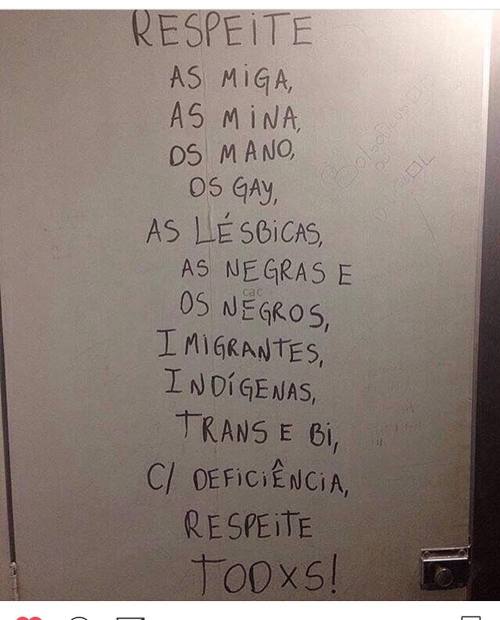 RESPEITE
AS MIGA,
AS MINA,
OS MANO,
OS GAY,
AS LÉSBICAS,
AS NEGRAS E
cac
OS NEGROS,
IMIGRANTES,
INDÍGENAS,
TRANS E BI,
C/ DEFICIÊNCIA,
RESPEITE
TODXS!